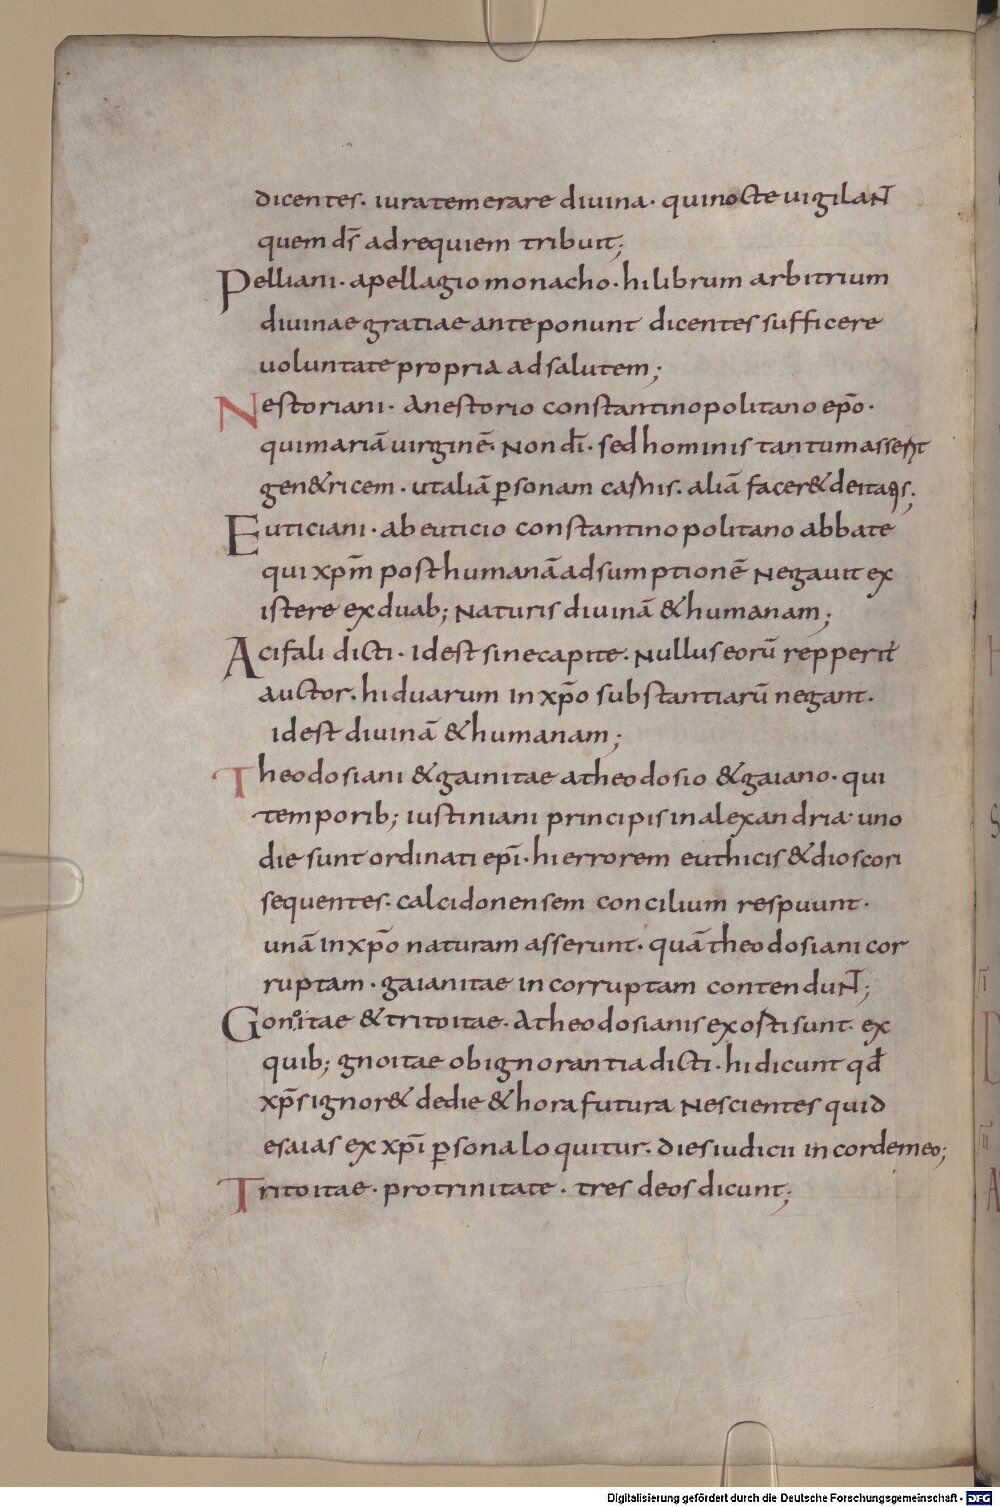 dicentes· iura temerare diuina· qui nocte uigilaNT̄
quem ds̄ ad requiem tribuit;
Pelliani· a pellagio monacho· hi librum arbitrium
diuinae gratiae anteponunt dicentes sufficere
uoluntate propria ad salutem;
Nestoriani· a nestorio constantinopolitano ep̄o·
qui mariā uirginē· Non dī· sed hominis tantum asserṭ
gen&ricem· ut aliā ꝑsonam carnis· aliā facer& deitatis;
Euticiani· ab euticio constantinopolitano abbate
qui xp̄m post humanā adsumptionē Negauit ex
istere ex duab; Naturis diuinā & humanam;
Acifali dicti· id est sine capite· Nullus eorū repperit
auctor· hi duarum in xp̄o substantiarū negant·
id est diuinā & humanam;
Theodosiani & gainitae a theodosio & gaiano· qui
temporib; iustiniani principis in alexandria· uno
die sunt ordinati epī· hi errorem euthicis & dioscori
sequentes· calcidonensem concilium respuunt·
unā in xp̄o naturam asserunt· quā theodosiani cor
ruptam· gaianitae incorruptam contenduNT̄;
Gonoitae & tritoitae· A theodosianis exosti sunt· ex
quib; gnoitae ob ignorantia dicti· hi dicunt qd̄
xp̄s ignor& de die & hora futura Nescientes quid
esaias ex xpī ꝑsona loquitur· dies iudicii in corde meo;
Tritoitae· pro trinitate· tres deos dicunt;
Digitalisierung gefördert durch die Deutsche Forschungsgemeinschaft - DFG